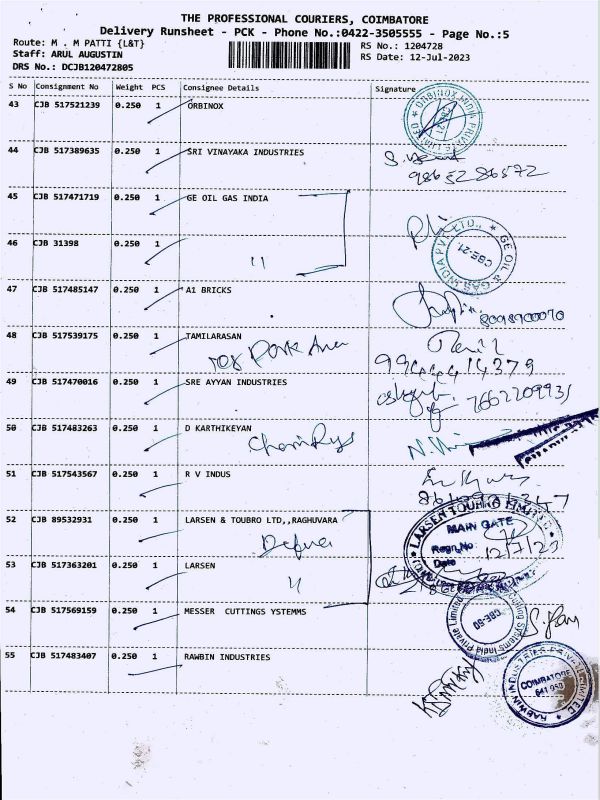 THE PROFESSIONAL COURIERS, COIMBATORE
Delivery Runsheet - PCK - Phone No.:0422-3505555 - Page No.:5
Route: M . M PATTI {L&T}
RS No.: 1204728
Staff: ARUL AUGUSTIN
RS Date: 12-Jul-2023
DRS No.: DCJB120472805
S No Consignment No Weight PCS Consignee Details Signature
43 CJB 517521239 0.250 1 ORBINOX
44 CJB 517389635 0.250 1 SRI VINAYAKA INDUSTRIES
45 CJB 517471719 0.250 1 GE OIL GAS INDIA
46 CJB 31398 0.250 1 "
GE OIL & GAS INDIA PVT. LTD.,
CBE-21.
47 CJB 517485147 0.250 1 A1 BRICKS
8098900070
48 CJB 517539175 0.250 1 TAMILARASAN
49 CJB 517470016 0.250 1 SRE AYYAN INDUSTRIES
50 CJB 517483263 0.250 1 D KARTHIKEYAN
51 CJB 517543567 0.250 1 R V INDUS
52 CJB 89532931 0.250 1 LARSEN & TOUBRO LTD,,RAGHUVARA
LARSEN TOUBRO LIMITED
MAIN GATE
Regn.No
Date 12/7/23
53 CJB 517363201 0.250 1 LARSEN "
54 CJB 517569159 0.250 1 MESSER CUTTINGS YSTEMMS
CBE-50
55 CJB 517483407 0.250 1 RAWBIN INDUSTRIES
COIMBATORE